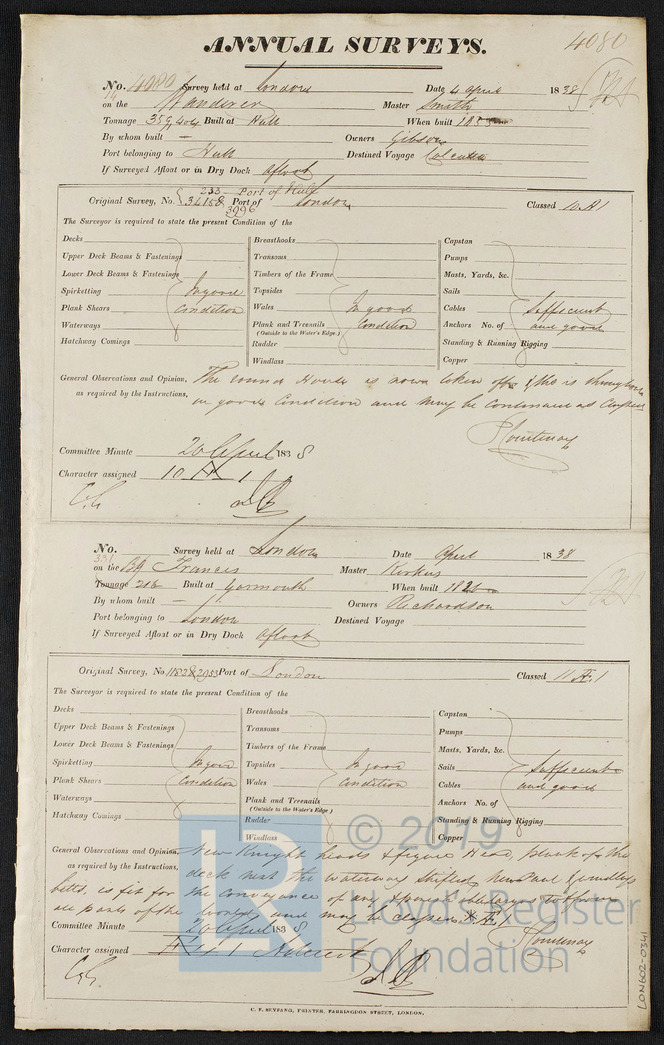 ANNUAL SURVEYS.
4080
No. 4080 Survey held at London Date 4 April 1838
on the Wanderer Master Smith
Tonnage 359 404 Built at Hull When built 1835
By whom built — Owners Gibson
Port belonging to Hull Destined Voyage Calcutta
If Surveyed Afloat or in Dry Dock Afloat
233 Port of Hull
Original Survey, No. Port of London Classed 10 A 1
3996
The Surveyor is required to state the present Condition of the
Decks
Upper Deck Beams & Fastenings
Lower Deck Beams & Fastenings
Spirketting In good
Plank Shears Condition
Waterways
Hatchway Comings
Breasthooks
Transoms
Timbers of the Frame
Topsides
Wales In good
Plank and Treenails Condition
(Outside to the Water's Edge)
Rudder
Windlass
Capstan
Pumps
Masts, Yards, &c.
Sails
Cables Sufficient
Anchors No. of and good
Standing & Running Rigging
Copper
General Observations and Opinion, The round House is now taken off & she is throughout
as required by the Instructions, in good Condition and may be Continued as Classed
P Courtenay
Committee Minute 20 April 1838
Character assigned 10 A 1
No. Survey held at London Date April 1838
331
on the Bg Francis Master Kirkus
Tonnage 216 Built at Yarmouth When built
By whom built — Owners Richardson
Port belonging to London Destined Voyage
If Surveyed Afloat or in Dry Dock Afloat
Original Survey, No. 1182 & 2953 Port of London Classed 11 Æ 1
The Surveyor is required to state the present Condition of the
Decks
Upper Deck Beams & Fastenings
Lower Deck Beams & Fastenings
Spirketting In good
Plank Shears Condition
Waterways
Hatchway Comings
Breasthooks
Transoms
Timbers of the Frame
Topsides In good
Wales Condition
Plank and Treenails
(Outside to the Water's Edge)
Rudder
Windlass
Capstan
Pumps
Masts, Yards, &c.
Sails Sufficient
Cables and good
Anchors No. of
Standing & Running Rigging
Copper
General Observations and Opinion, New Knight heads & figure Head, plank of the
as required by the Instructions, deck next the waterway shifted, new and windlass
bitts, is fit for the conveyance of dry & perishable cargoes to & from
all parts of the world and may be classed Æ 1
Committee Minute 20 April 1838
Courtenay
Character assigned Æ 1
© 2019
Lloyd's Register
Foundation
LON602-0341
C. F. SEYFANG, PRINTER, FARRINGDON STREET, LONDON.